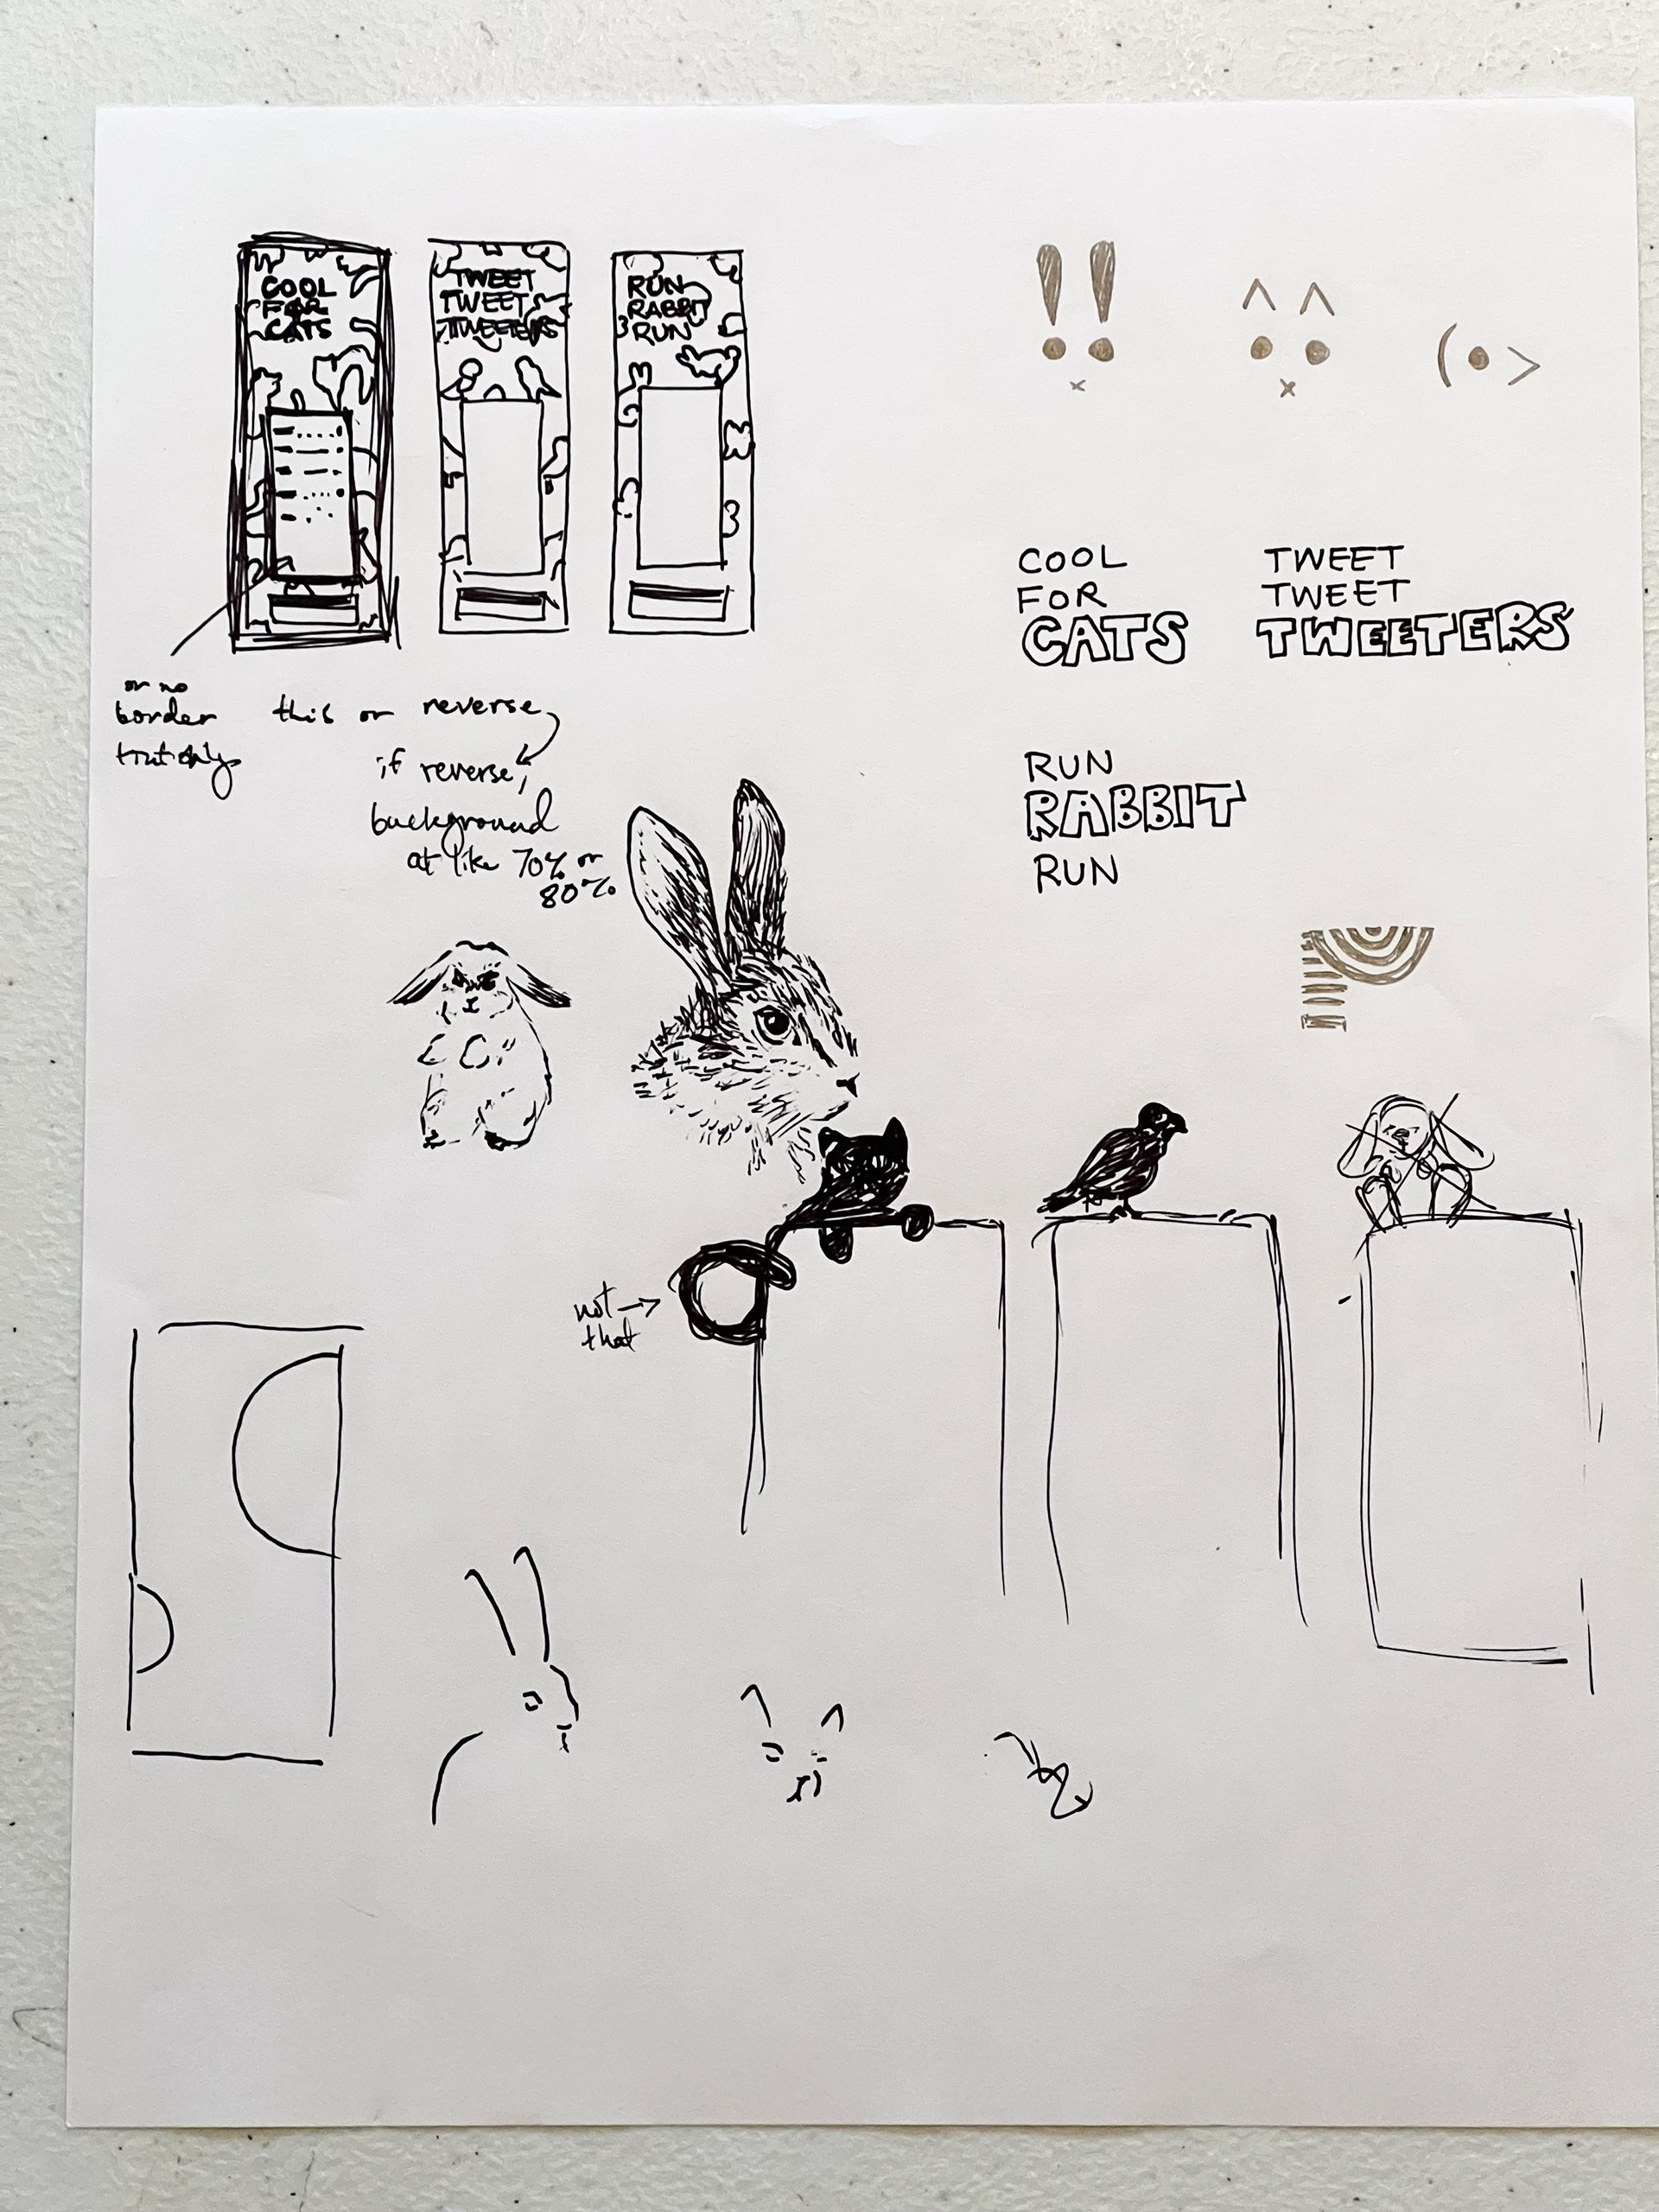 COOL
FOR
CATS
TWEET
TWEET
TWEETERS
RUN
RABBIT
RUN
or no
border
this or reverse
if reverse,
background
at like 70% or
80%
COOL
FOR
CATS
TWEET
TWEET
TWEETERS
RUN
RABBIT
RUN
not →
that